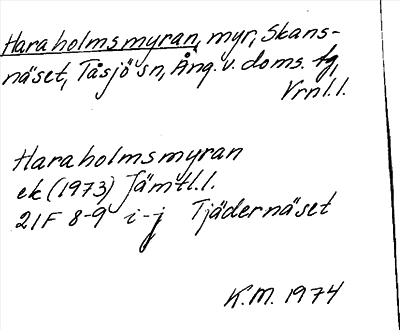 Haraholmsmyran, myr, Skans-
näset, Tåsjö sn, Ång. v. doms. tg,
Vrnl.l.
Haraholmsmyran
ek (1973) Jämtl.l.
21F 8-9 i-j Tjädernäset
K.M. 1974